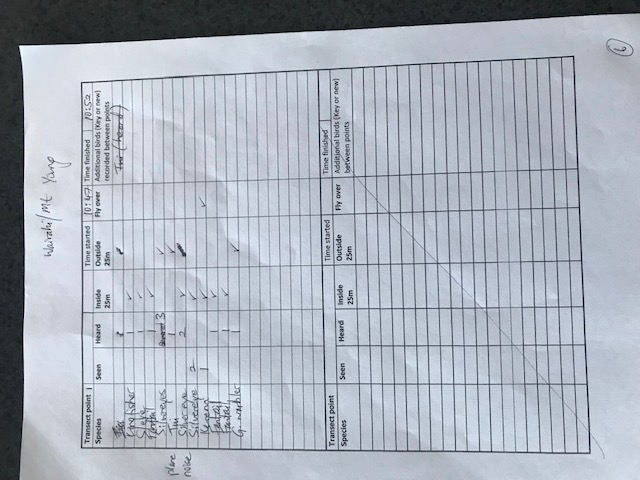 Wairahi/Mt Young
Transect point 1 Time started 10:47 Time finished 10:52
Species Seen Heard Inside 25m Outside 25m Fly over Additional birds (Key or new) recorded between points
Tui (heard)
Kingfisher 1 ✓
1 ✓
Fantail 1 ✓
Silvereyes 3 ✓
Tui 1 ✓
plane noise
Silvereye 2 ✓
Silvereye 2 ✓
Kereru 1 ✓ ✓
Fantail 1 ✓
Fantail 1 ✓
G. warbler 1 ✓
Transect point Time started Time finished
Species Seen Heard Inside 25m Outside 25m Fly over Additional birds (Key or new) between points
6